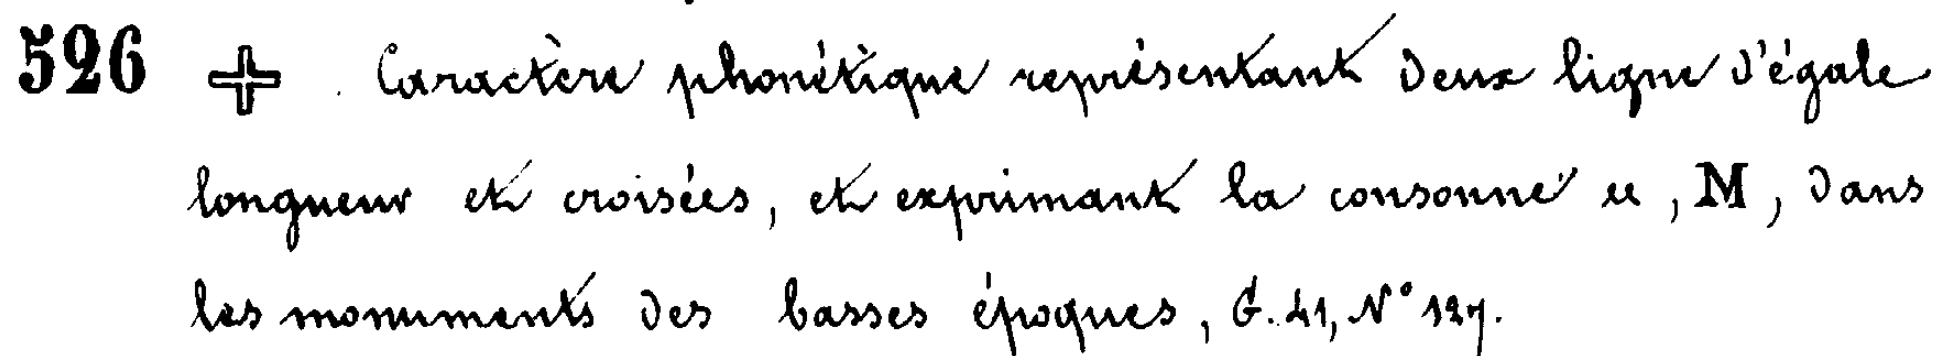 526 ✚ Caractère phonétique représentant deux ligne d'égale
longueur et croisées, et exprimant la consonne ⲙ, M, dans
les monuments des basses époques, G. 41, N° 127.